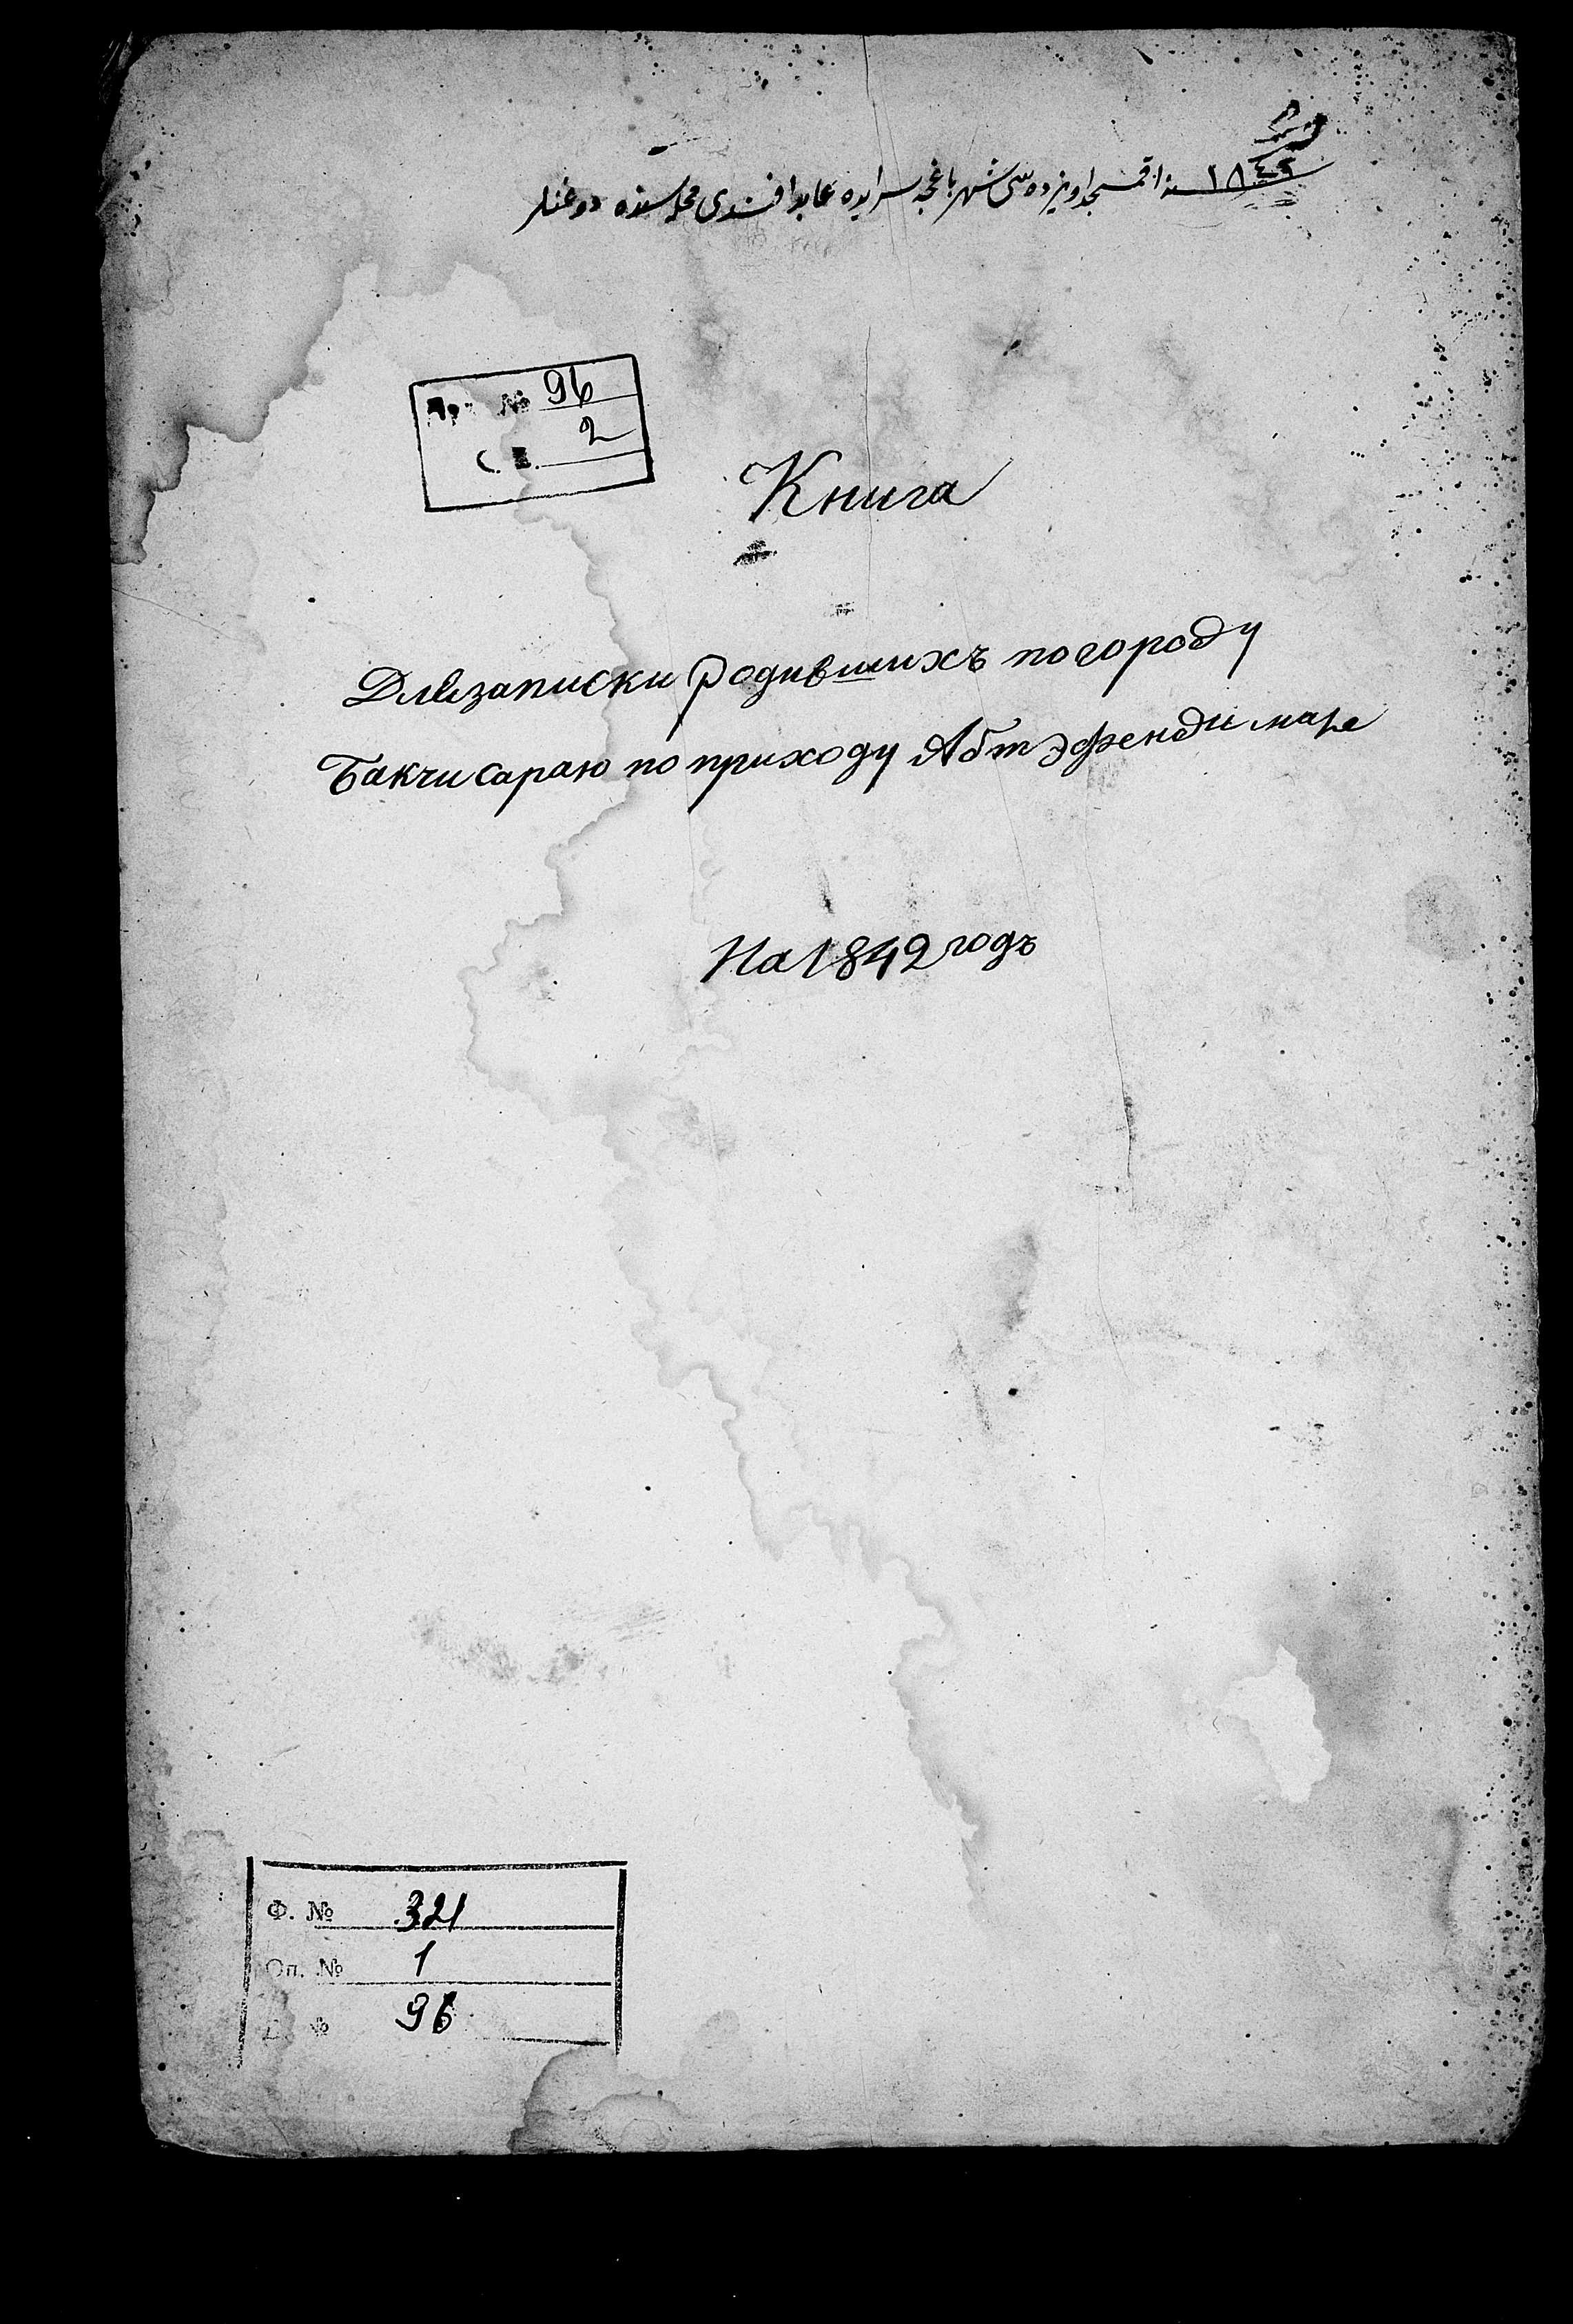 ١٨٤٢ سنه اقمسجد اویزده سی شهر باغچه سرایده عابد افندی محله سنده دوغنلر
№ 96
2
Книга
Для записки родившихъ по городу
Бакчисараю по приходу Абтэфенди маге
На 1842 годъ
Ф. № 321
Оп. № 1
96